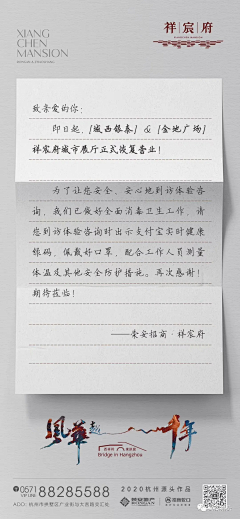 XIANG
CHEN
MANSION
祥宸府
致亲爱的你:
即日起,[城西银泰] & [金地广场]
祥宸府城市展厅正式恢复营业!
为了让您安全、安心地到访体验咨
询,我们已做好全面消毒卫生工作,请
您到访体验咨询时出示支付宝实时健康
绿码,佩戴好口罩,配合工作人员测量
体温及其他安全防护措施。再次感谢!
期待莅临!
——荣安招商·祥宸府
风华越千年
Bridge in Hangzhou
0571
VIP LINE
88285588
2020杭州源头作品
荣安地产
招商蛇口